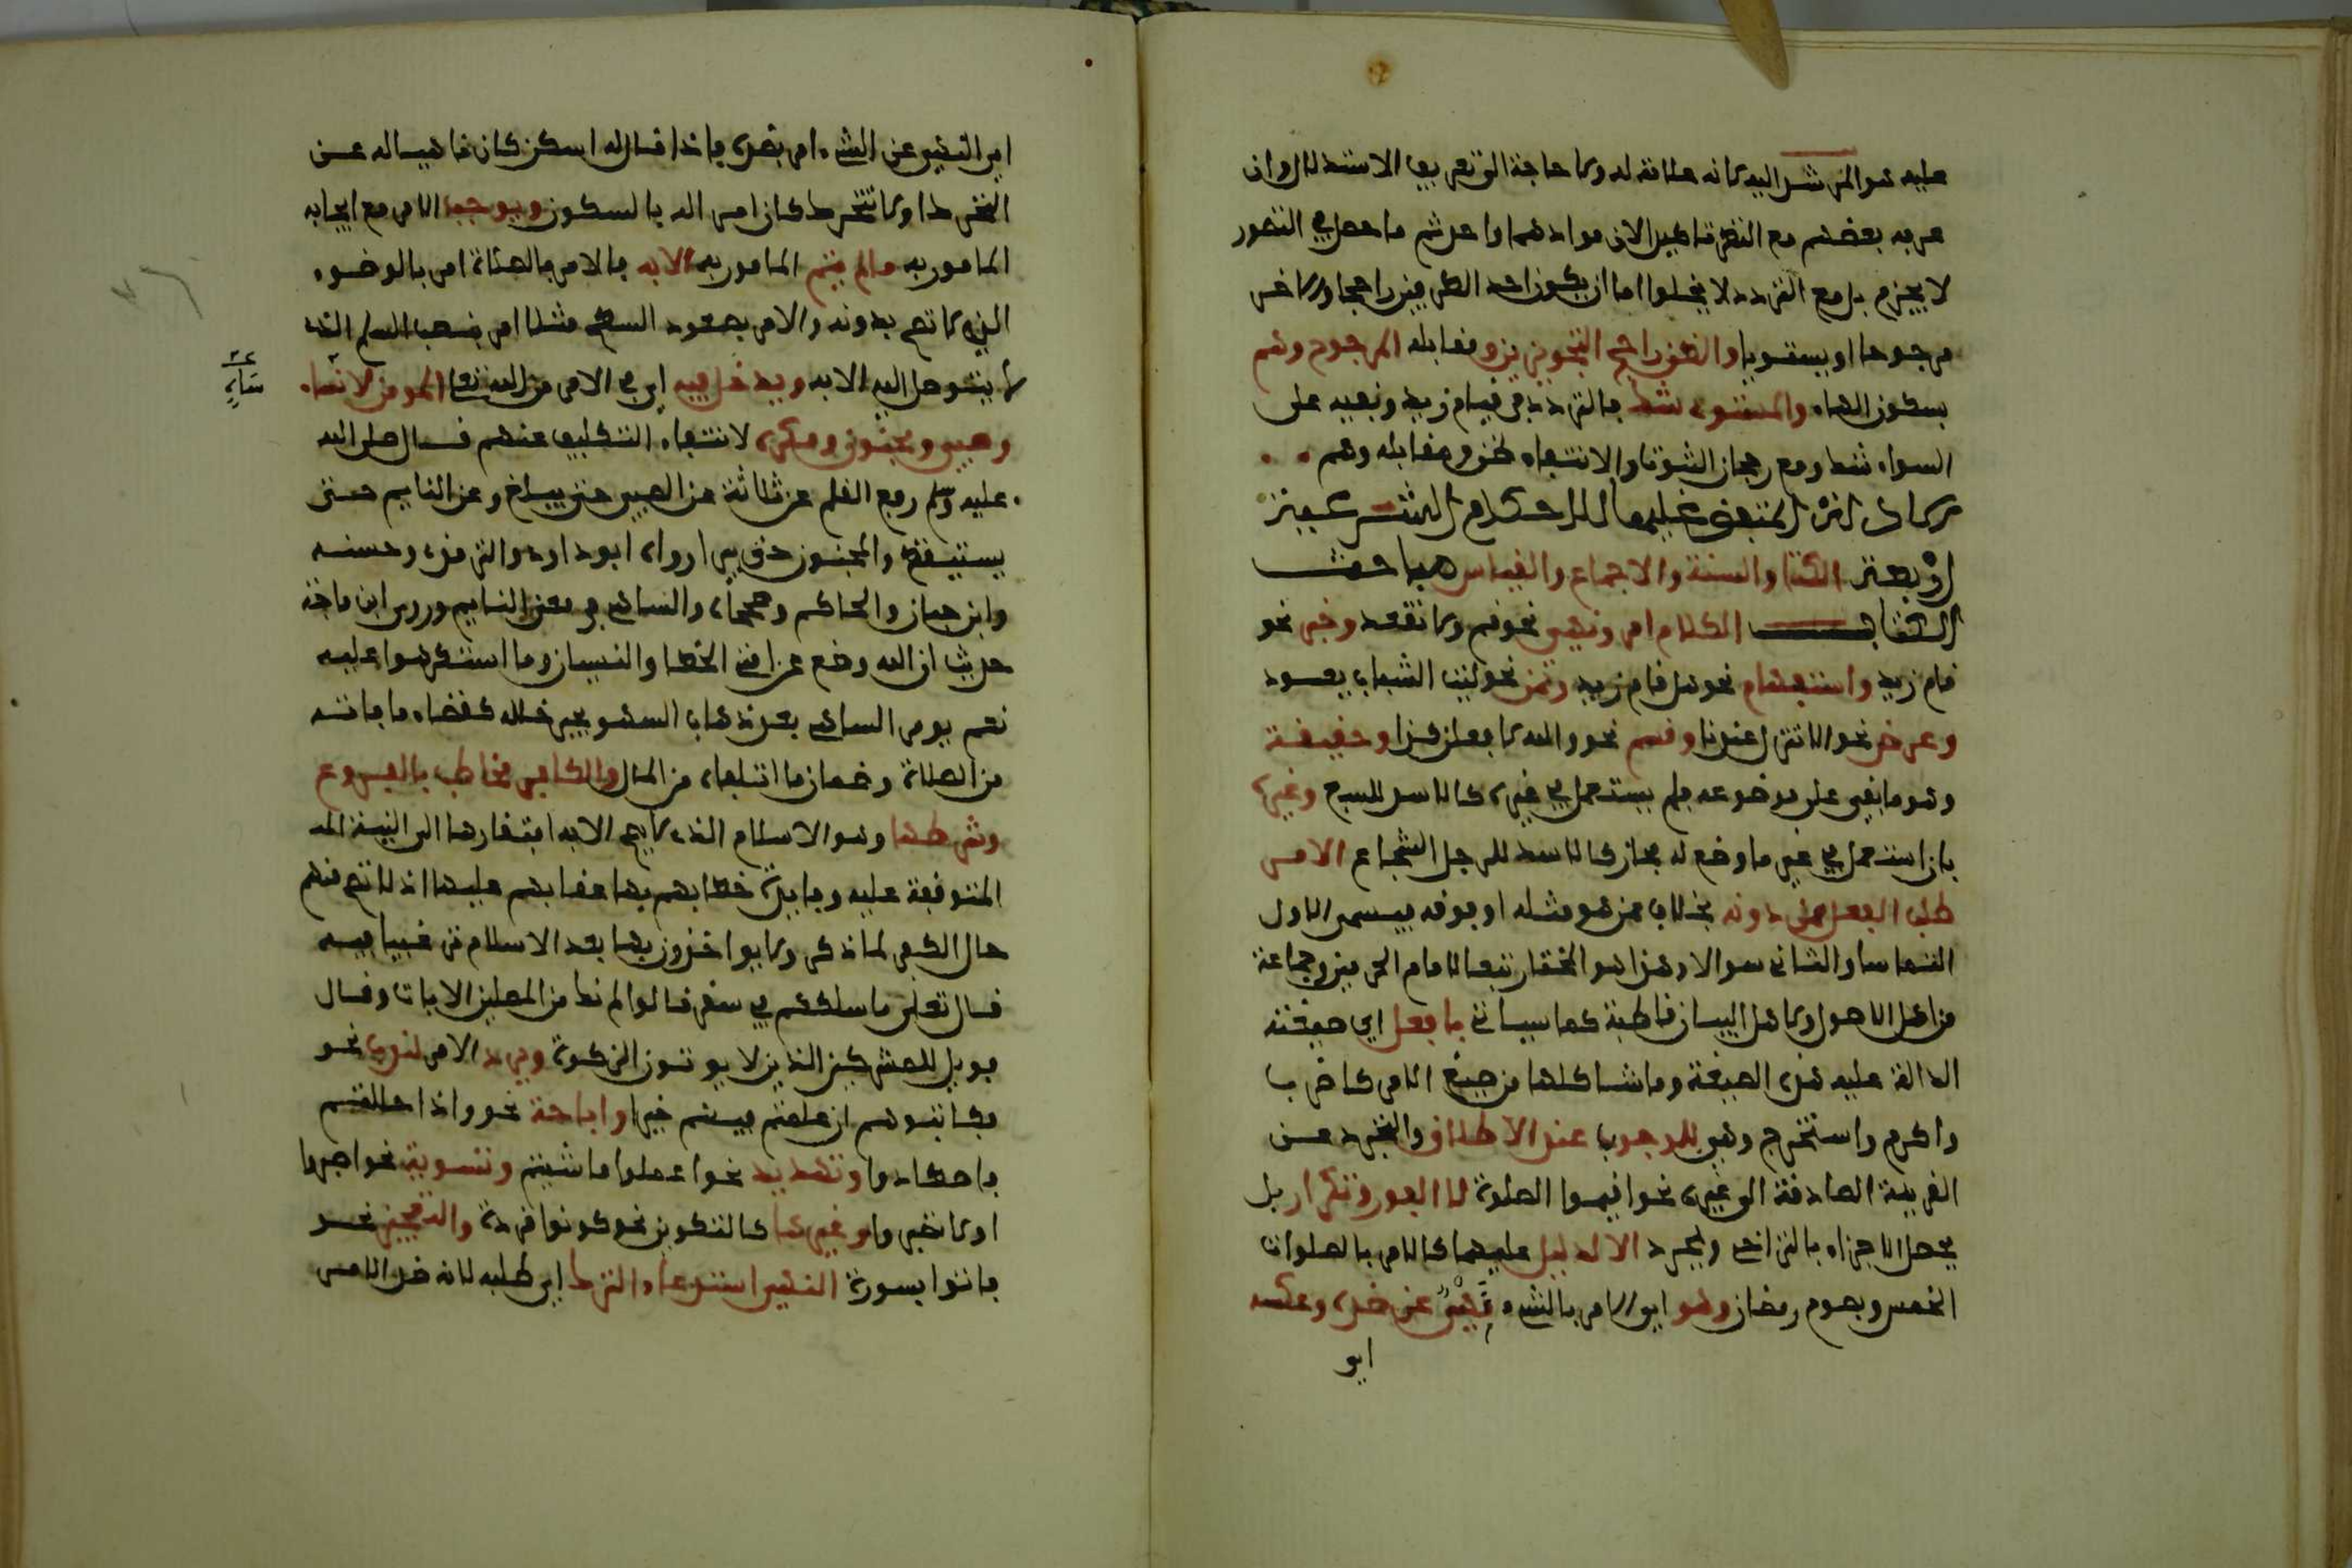 عليه هو المرشد اليه لانه علامة له ولا حاجة الى تعريف الاستدلال وان
عرفه بعضهم مع النظر فاطبق الان موادهما واحد ثم ما حصل في التصور
لا يجزم بل مع التردد لا يخلوا اما ان يكون احد الطرفين راجحا والاخر
مرجوحا او يستويا والظن راجح التجويزين ومقابله المرجوح وهم
بسكون الهاء والمستوى شك فالتردد في قيام زيد ونفيه على
السواء شك ومع رجحان الثبوت او الانتفاء ظن ومقابله وهم
الادلة المتفق عليها للاحكام الشرعية
اربعة الكتاب والسنة والاجماع والقياس مباحث
الكتاب الكلام امر ونهي نحو قم ولا تقعد وخبر نحو
قام زيد واستفهام نحو هل قام زيد وتمن نحو ليت الشباب يعود
وعرض نحو الا تنزل عندنا وقسم نحو والله لا فعلن كذا وحقيقة
وهو ما بقي على موضوعه فلم يستعمل في غيره كالاسد للسبع وغيره
بان استعمل في غير ما وضع له مجاز كالاسد للرجل الشجاع الامر
طلب الفعل ممن دونه بخلاف ممن هو مثله او فوقه فيسمى الاول
التماسا والثاني سوالا وهذا هو المختار تبعا لامام الحرمين وجماعة
من اهل الاصول ولاهل البيان قاطبة كما سياتي بافعل اي صيغته
الدالة عليه هذه الصيغة وما شاكلها من صيغ الامر كاضرب
واكرم واستخرج وهي للوجوب عند الاطلاق والتجرد عن
القرينة الصارفة الى غيره نحو اقيموا الصلوة لا الفور وتكرار بل
يحصل الاجزاء بالتراخي وبمجرد الا لدليل عليهما كالامر بالصلوات
الخمس وبصوم رمضان وهو اي الامر بالشيء نهي عن ضده وعكسه
اي
اي النهي عن الشيء امر بضده فاذا قال له اسكن كان ناهيا له عن
التحرك او لا تتحرك كان امرا له بالسكون ويوجب الامر مع ايجابه
المامور به ما لم يتم المامور به الا به فالامر بالصلاة امر بالوضوء
الذي لا تصح بدونه والامر بصعود السطح مثلا امر بنصب السلم الذي
لا يتوصل اليه الا به ويدخل فيه اي في الامر من الله تعالى المومن لا
ساه
وصبي ومجنون ومكره لانتفاء التكليف عنهم قال صلى الله
عليه وسلم رفع القلم عن ثلاثة عن الصبي حتى يبلغ وعن النايم حتى
يستيقظ والمجنون حتى يبرا رواه ابو داود والترمذي وحسنه
وابن حبان والحاكم وصححاه والساهي في معنى النايم وروى ابن ماجة
حديث ان الله وضع عن امتي الخطا والنسيان وما استكرهوا عليه
نعم يومر الساهي بعد ذهاب السهو بجبر خلله كقضاء ما فاته
من الصلاة وضمان ما اتلفه من المال والكافر مخاطب بالفروع
وشرطها وهو الاسلام الذي لا تصح الا به لافتقارها الى النية
المتوقفة عليه وفايدة خطابهم بها عقابهم عليها اذ لا تصح منهم
حال الكفر لما ذكر ولا يواخذون بها بعد الاسلام ترغيبا فيه
قال تعلى ما سلككم في سقر قالوا لم نك من المصلين الايات وقال
فويل للمشركين الذين لا يوتون الزكوة ويرد الامر لندب نحو
فكاتبوهم ان علمتم فيهم خيرا واباحة نحو واذا حللتم
فاصطادوا وتهديد نحو اعملوا ما شيتم وتسوية نحو اصبروا
او لا تصبروا وغيرها كالتكوين نحو كونوا قردة والتعجيز نحو
فاتوا بسورة النهي استدعاء الترك اي طلبه لانه ضد الامر